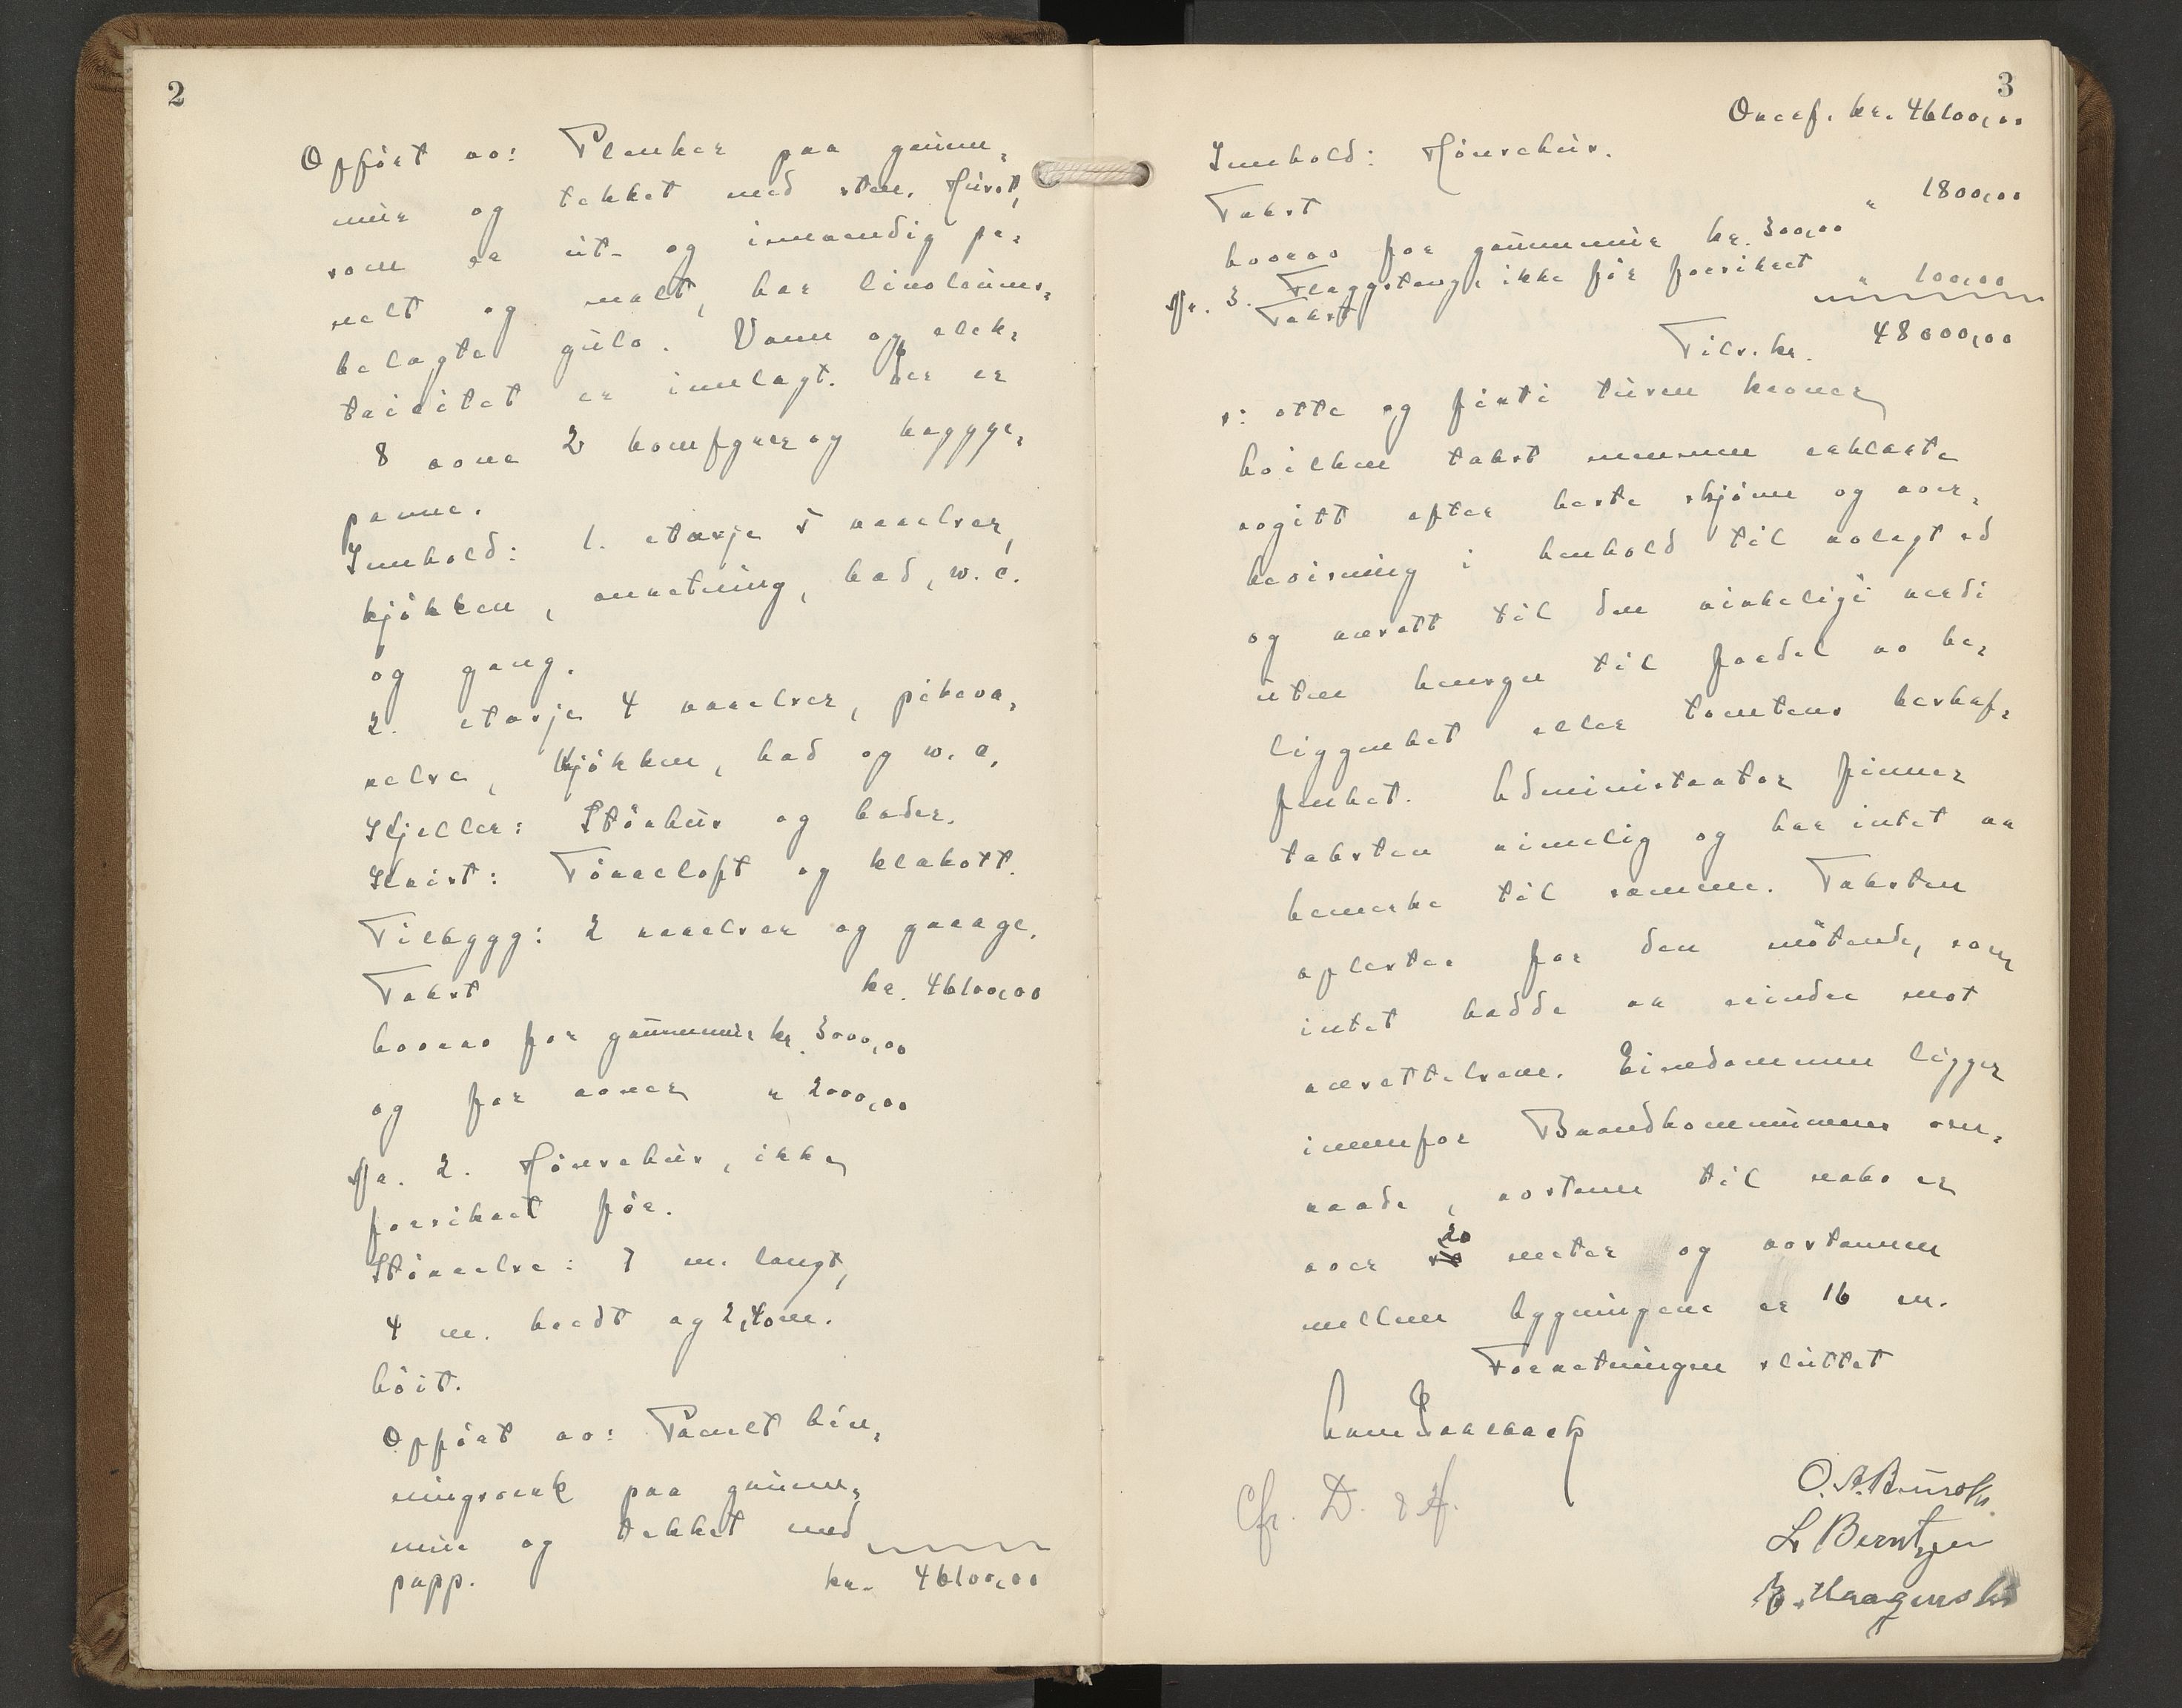 2
Opført av: Planker paa grunn-
mur og tekket med sten. Huset,
som er ut- og innvendig pa-
nelt og malt, har linoleums-
belagte gulv. Vann og elek-
trisitet er innlagt. Der er
8 ovne 2 komfyrer og bryggе-
panne.
Innhold: 1. etasje 5 værelser,
kjøkken, anretning, bad, w.c.
og gang.
2. etasje 4 værelser, pikevæ-
relse, kjøkken, bad og w.c.
Kjeller: Størhus og boder.
Kvist: Tørreloft og klekott.
Tilbygg: 2 værelser og garage.
Takst kr. 46100,00
hvorav for grunnmur kr. 3000,00
og for ovner " 2000,00
Nr. 2. Hønsehus, ikke
forsikret før.
Størrelse: 7 m. langt,
4 m. bredt og 2,40 m.
høit.
Opført av: Panelt bin-
ningsverk paa grunn-
mur og tekket med
papp. kr. 46100,00
3
Overf. kr. 46100,00
Innhold: Hønsehus.
Takst " 1800,00
hvorav for grunnmur kr. 300,00
Nr. 3. Flaggstang, ikke før forsikret
Takst " 100,00
Tils. kr. 48000,00
s: otte og firti tusen kroner
hvilken takst mennene erklærte
avgitt efter beste skjønn og over-
bevisning i henhold til avlagt ed
og ansatt til den virkelige verdi
uten hensyn til fordel av be-
liggenhet eller tomtens beskaf-
fenhet. Administrator finner
taksten rimelig og har intet aa
bemerke til samme. Taksten
oplestes for den møtende, som
intet hadde aa erindre mot
ansettelsene. Eiendommen ligger
innenfor Brandkommunens om-
raade, avstann til nabo er
over 20 meter og avstannen
mellem bygningene er 16 m.
Forretningen sluttet
Cfr. D. 8 H.
L Berntzen